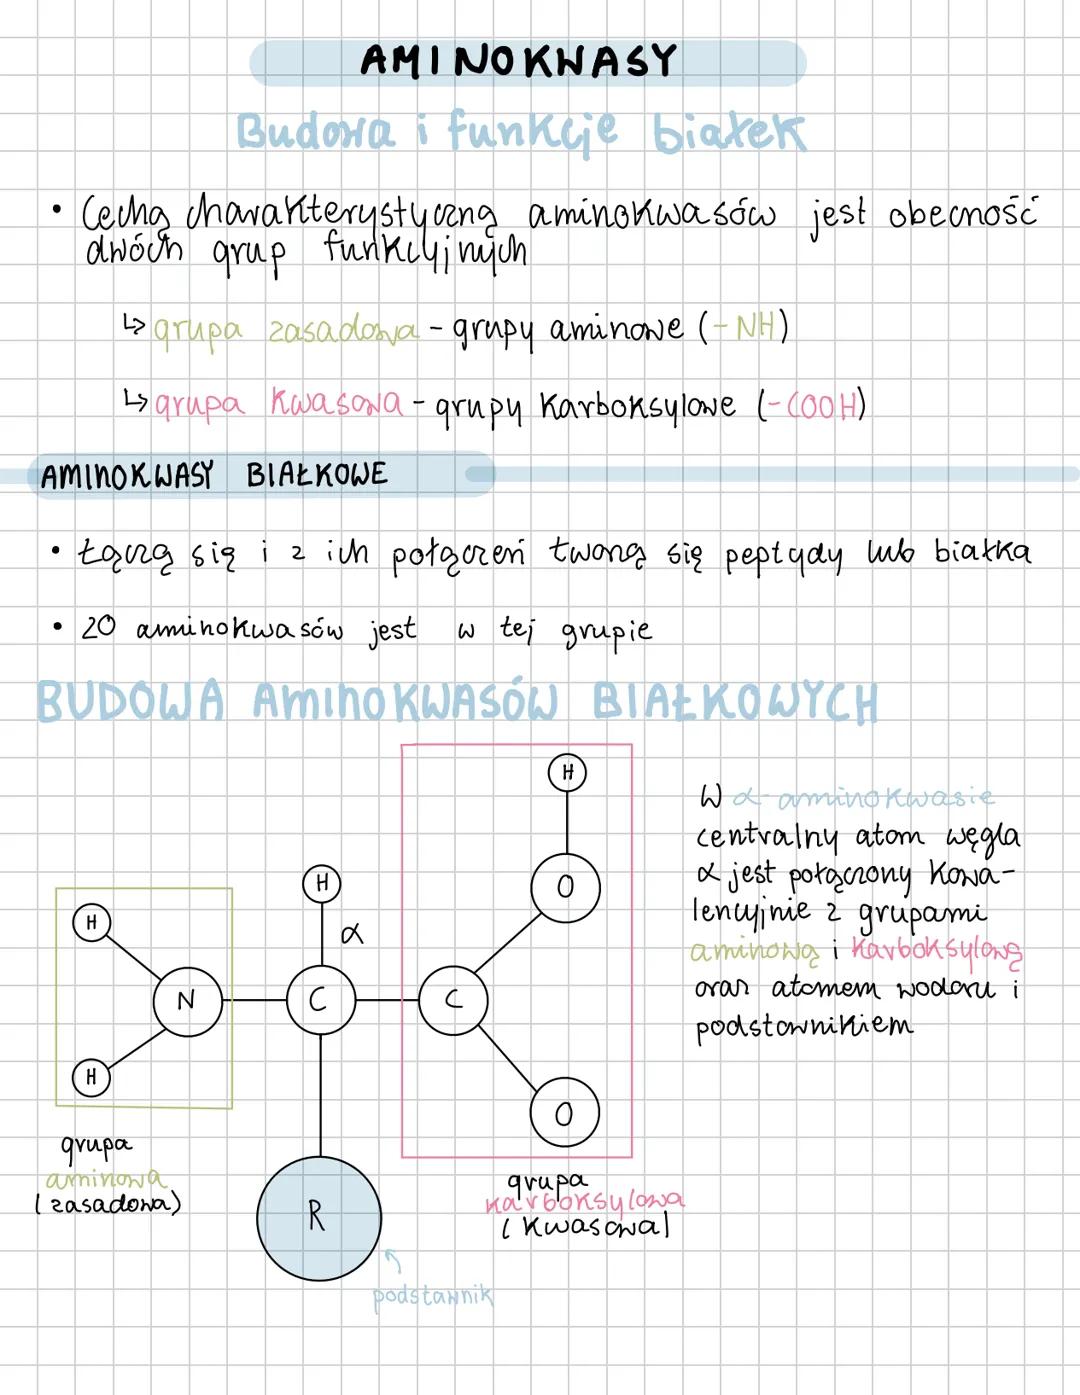 AMINOKWASY
Budowa i funkcje białek
• Cechą charakterystyczną aminokwasów jest obecność
dwóch grup funkcyjnych
↳ grupa zasadowa - grupy aminowe (-NH)
↳ grupa kwasowa - grupy karboksylowe (-COOH)
AMINOKWASY BIAŁKOWE
• Łączą się i z ich połączeń tworzą się peptydy lub białka
• 20 aminokwasów jest w tej grupie
BUDOWA AMINOKWASÓW BIAŁKOWYCH
H
O
H
α
H
N
C
C
H
O
R
grupa
aminowa
(zasadowa)
grupa
karboksylowa
(kwasowa)
podstawnik
W α-aminokwasie
centralny atom węgla
α jest połączony kowa-
lencyjnie z grupami
aminową i karboksylową
oraz atomem wodoru i
podstawnikiem